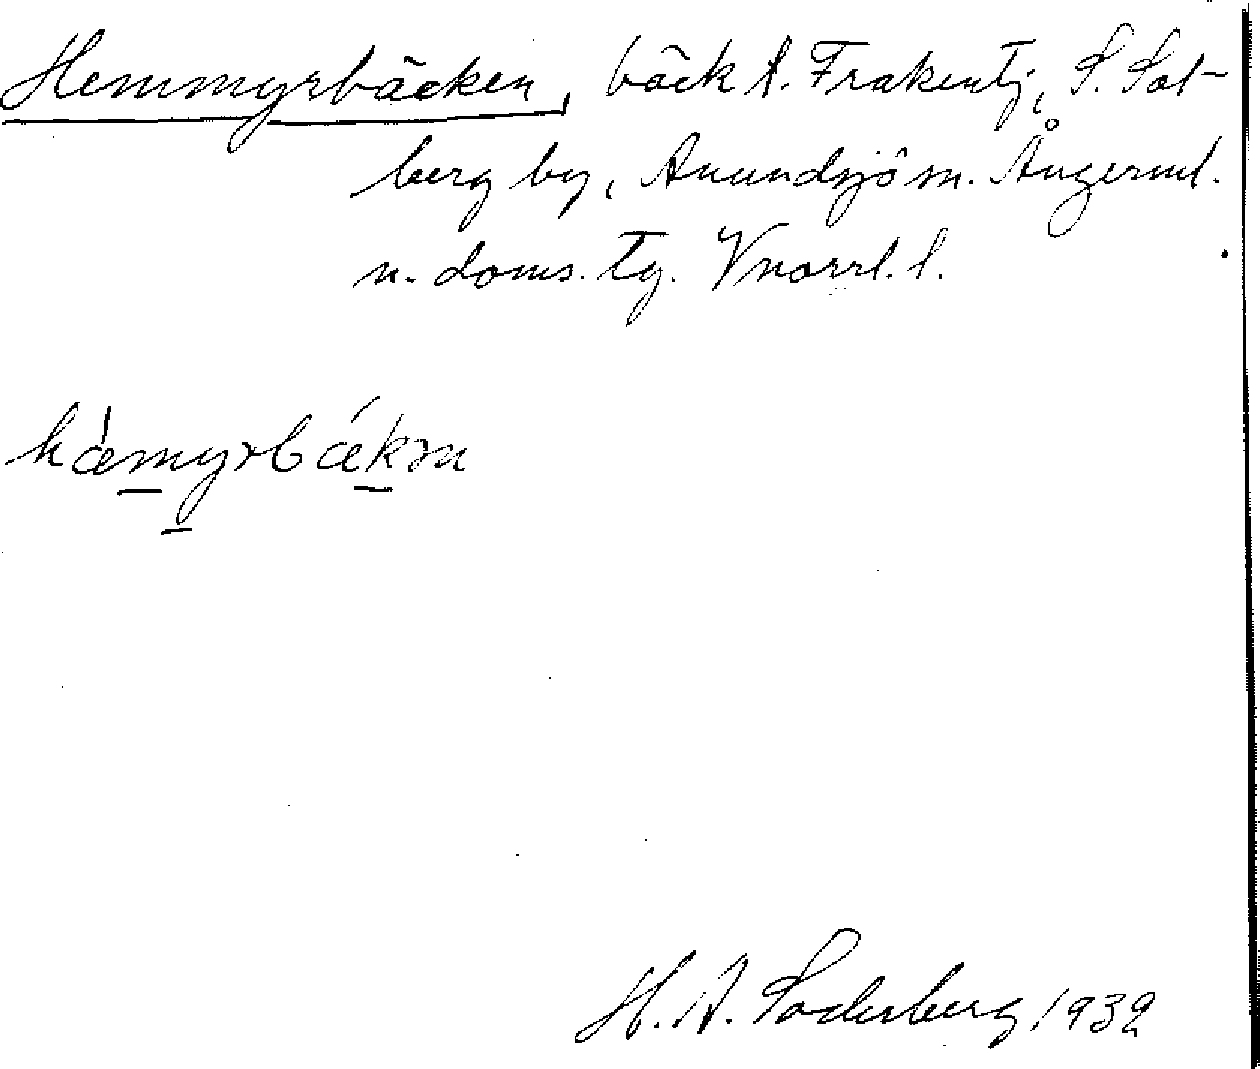 Hemmyrbäcken, bäck t. Frakentj., S. Sol-
berg by, Anundsjö sn. Ångerml.
n. doms. tg. Vnorrl. l.
hæ̀myrbǽkɜn
H. A. Söderberg 1932